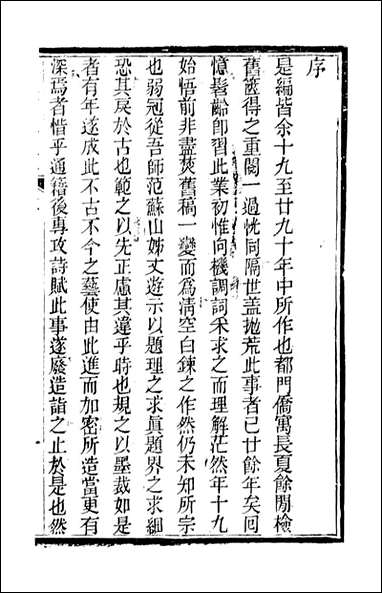 序
是編皆余十九至廿九十年中所作也都門僑寓長夏餘閒檢
舊篋得之重閱一過恍同隔世盖拋荒此事者已廿餘年矣囘
憶髫齡即習此業初惟向機調詞采求之而理解茫然年十九
始悟前非盡焚舊稿一變而爲清空白鍊之作然仍未知所宗
也弱冠從吾師范蘇山姊丈遊示以題理之求眞題界之求細
恐其戾於古也範之以先正慮其違乎時也規之以墨裁如是
者有年遂成此不古不今之藝使由此進而加密所造當更有
深焉者惜乎通籍後專攻詩賦此事遂廢造詣之止於是也然